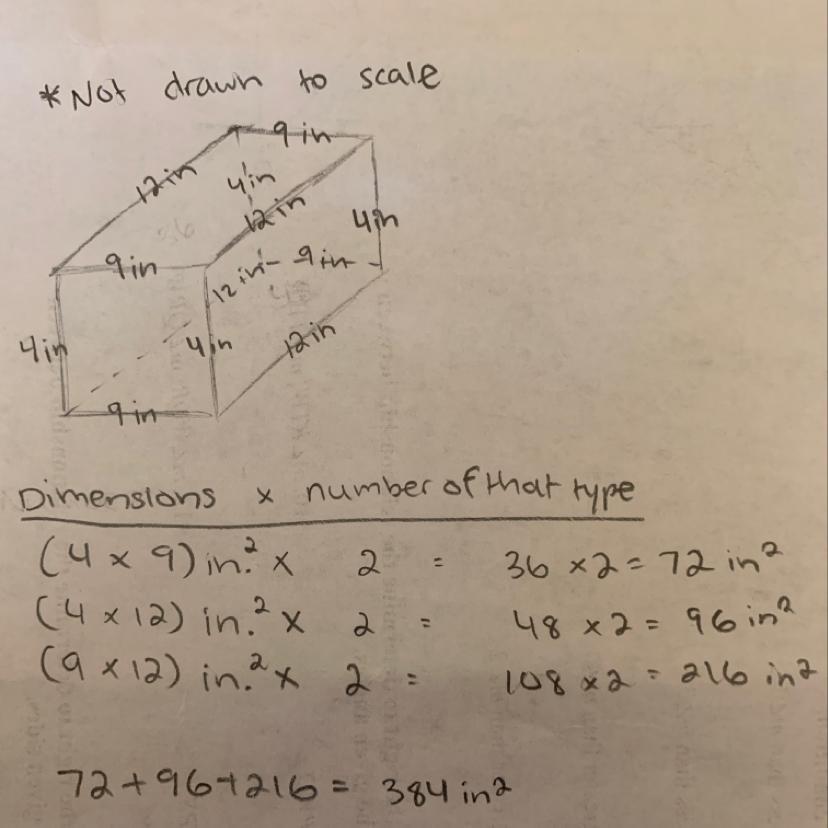 *Not drawn to scale
9 in
12 in
4 in
12 in
4 in
9 in
12 in
9 in
4 in
4 in
12 in
9 in
Dimensions x number of that type
(4 x 9) in.² x 2 = 36 x 2 = 72 in²
(4 x 12) in.² x 2 = 48 x 2 = 96 in²
(9 x 12) in.² x 2 = 108 x 2 = 216 in²
72 + 96 + 216 = 384 in²